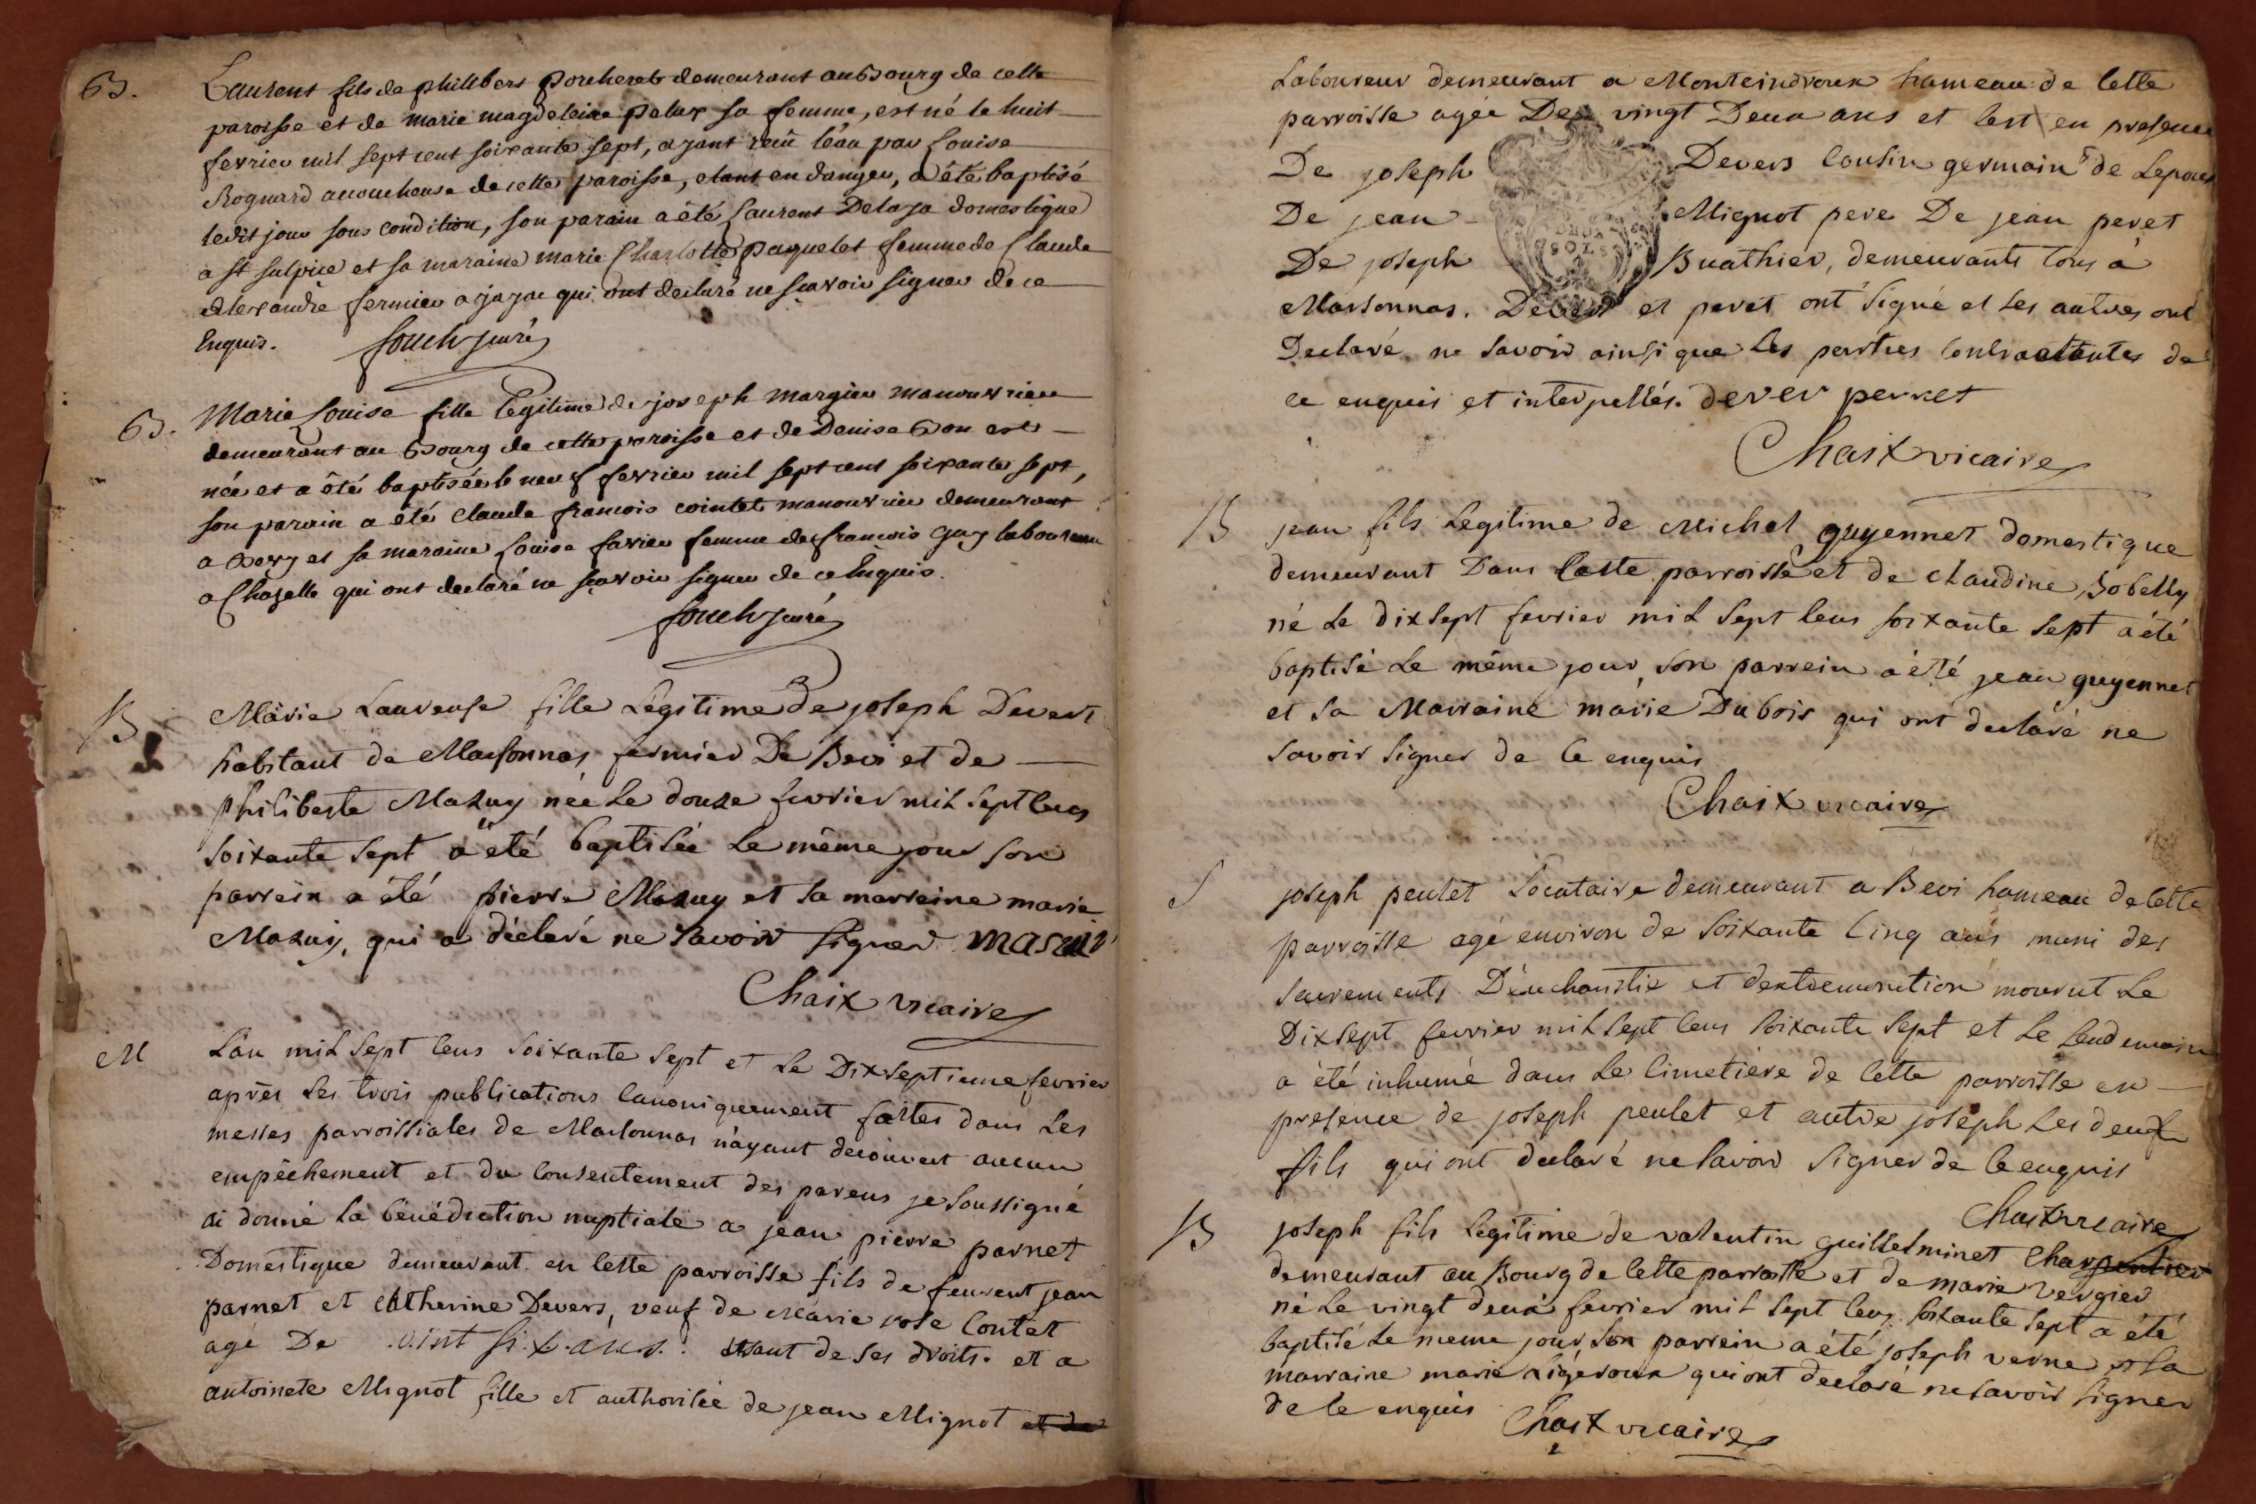 B.
Laurent fils de philibert Porcheret demeurant au Bourg de cette
paroisse et de marie magdeleine Palux sa femme, est né le huit
fevrier mil sept cent soixante sept, ayant reçu l'eau par Louise
Rognard acoucheuse de cette paroisse, etant en danger, a été baptisé
ledit jour sous condition, son parain a été Laurent Delaja domestique
a st sulpice et sa maraine marie Charlotte Paquelet femme de Claude
alexandre fermier a jajac qui ont declaré ne sçavoir signer de ce
Enquis. fouch curé
B.
Marie Louise fille legitime de joseph margier manouvrier
demeurant au Bourg de cette paroisse et de Denise Bon est
née et a été baptisée le neuf fevrier mil sept cent soixante sept,
son parain a été claude francois cointet manouvrier demeurant
a Bevy et sa maraine Louise favier femme de francois Gay laboureur
a Chazelle qui ont declaré ne sçavoir signer de ce Enquis.
fouch curé
B
Marie Laurense fille Legitime de joseph Devers
habitant de Marsonnas fermier De Bevi et de
philiberte Mazuy née Le douze fevrier mil sept cens
soixante sept a été baptisée Le même jour son
parrein a été pierre Mazuy et sa marreine marie
Mazuy, qui a déclaré ne savoir signer masuir
Chaix vicaire
M
L'an mil sept cens soixante sept et Le Dixseptieme fevrier
après Les trois publications canoniquement faites dans Les
messes parroissiales de Marsonnas n'ayant decouvert aucun
empêchement et du consentement des parens je soussigné
ai donné La bénédiction nuptiale a jean pierre parnet
Domestique demeurant en cette parroisse fils de feurent jean
parnet et Catherine Devers, veuf de Marie rose Contet
agé De vint six ans. etant de ses droits. et a
antoinete Mignot fille et authorisée de jean Mignot et de
Laboureur demeurant a Monteindroux hameau de cette
parroisse agée De vingt Deux ans et c'est en presence
De joseph Devers cousin germain de Lepoux
De jean Mignot pere De jean peret
DEUX
SOLS
De joseph Buathier, demeurants tous à
Marsonnas. Devers et peret ont signé et Les autres ont
Declaré ne savoir ainsi que Les parties contractantes de
ce enquis et interpellés. dever perret
Chaix vicaire
B
jean fils Legitime de Michel guyennet domestique
demeurant Dans cette parroisse et de claudine Bobelly
né Le dixsept fevrier mil sept cens soixante sept a été
baptisé Le même jour, son parrein a été jean guyennet
et sa Marraine marie Dubois qui ont declaré ne
savoir signer de ce enquis
Chaix vicaire
S
joseph peulet Locataire demeurant a Bevi hameau de cette
parroisse agé environ de soixante cinq ans muni des
sacrements D'euchaustie et dextremonction mourut Le
Dixsept fevrier mil sept cens soixante sept et Le Lendemain
a été inhumé dans Le cimetiére de cette parroisse en
presence de joseph peulet et autre joseph Les deux
fils qui ont declaré ne savoir signer de ce enquis
Chaix vicaire
B
joseph fils Legitime de valentin guillelminet Charpentier
demeurant au Bourg de cette parroisse et de marie vergier
né Le vingt deux fevrier mil sept cens soixante sept a été
baptisé Le meme jour, son parrein a été joseph verne et sa
marraine marie Ligeroux qui ont declaré ne savoir signer
de ce enquis Chaix vicaire